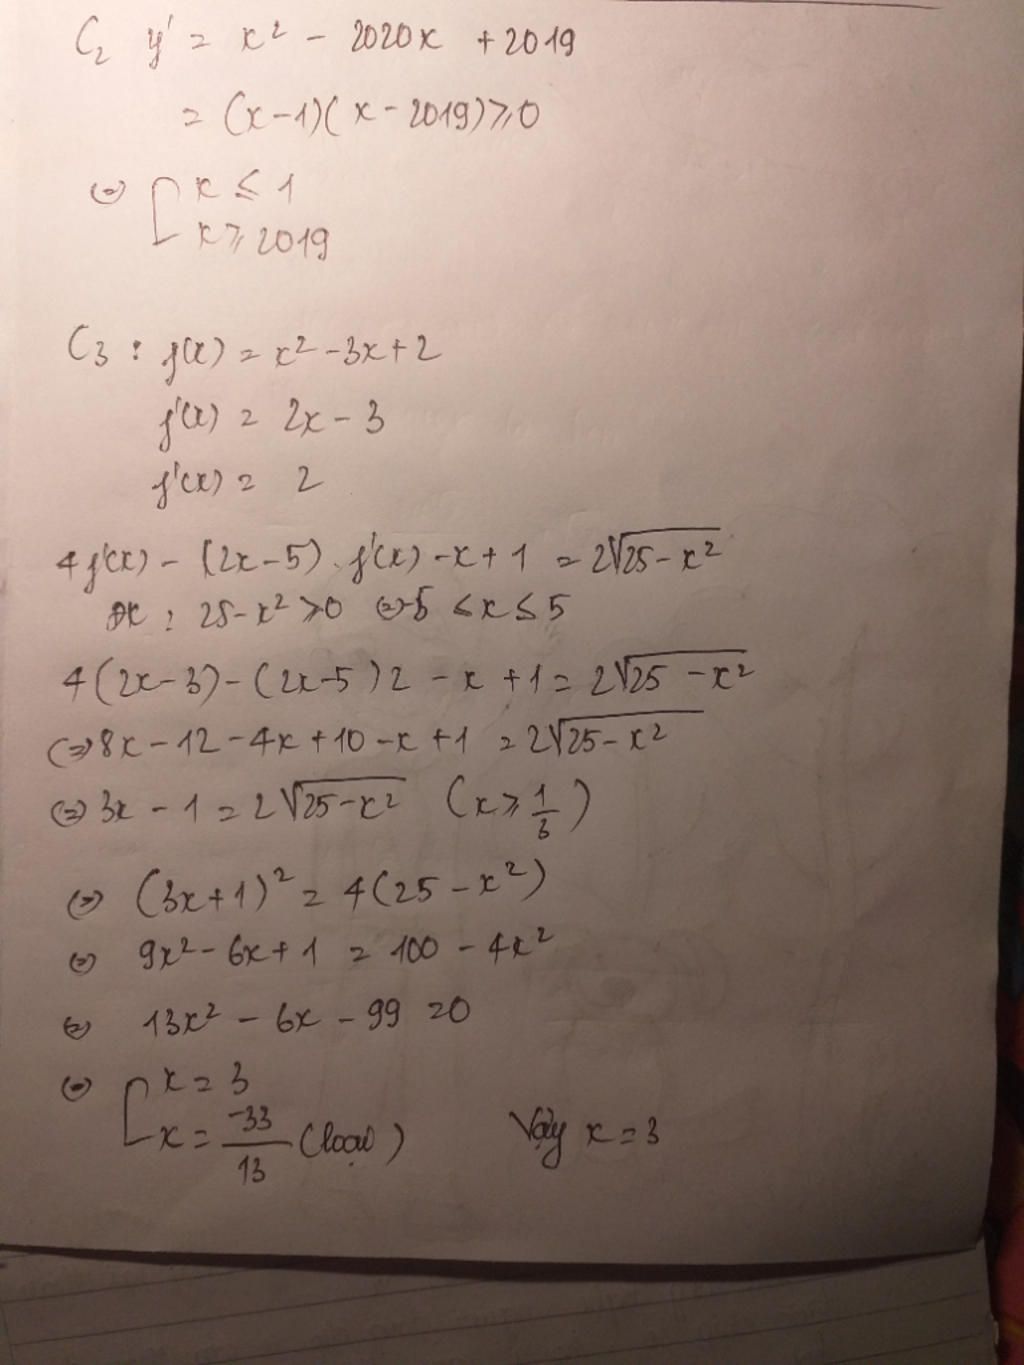 C₂ y' = x² - 2020x + 2019
= (x-1)(x-2019) ≥ 0
⇔ [ x ≤ 1
x ≥ 2019
C₃ : f(x) = x² - 3x + 2
f'(x) = 2x - 3
f'(x) = 2
4f'(x) - (2x-5).f'(x) - x + 1 = 2√(25-x²)
ĐK : 25-x² ≥ 0 ⇔ -5 ≤ x ≤ 5
4(2x-3) - (2x-5)2 - x + 1 = 2√(25-x²)
⇔ 8x - 12 - 4x + 10 - x + 1 = 2√(25-x²)
⇔ 3x - 1 = 2√(25-x²) (x ≥ 1/3)
⇔ (3x+1)² = 4(25-x²)
⇔ 9x² - 6x + 1 = 100 - 4x²
⇔ 13x² - 6x - 99 = 0
⇔ [ x = 3
x = -33/13 (loại) Vậy x = 3